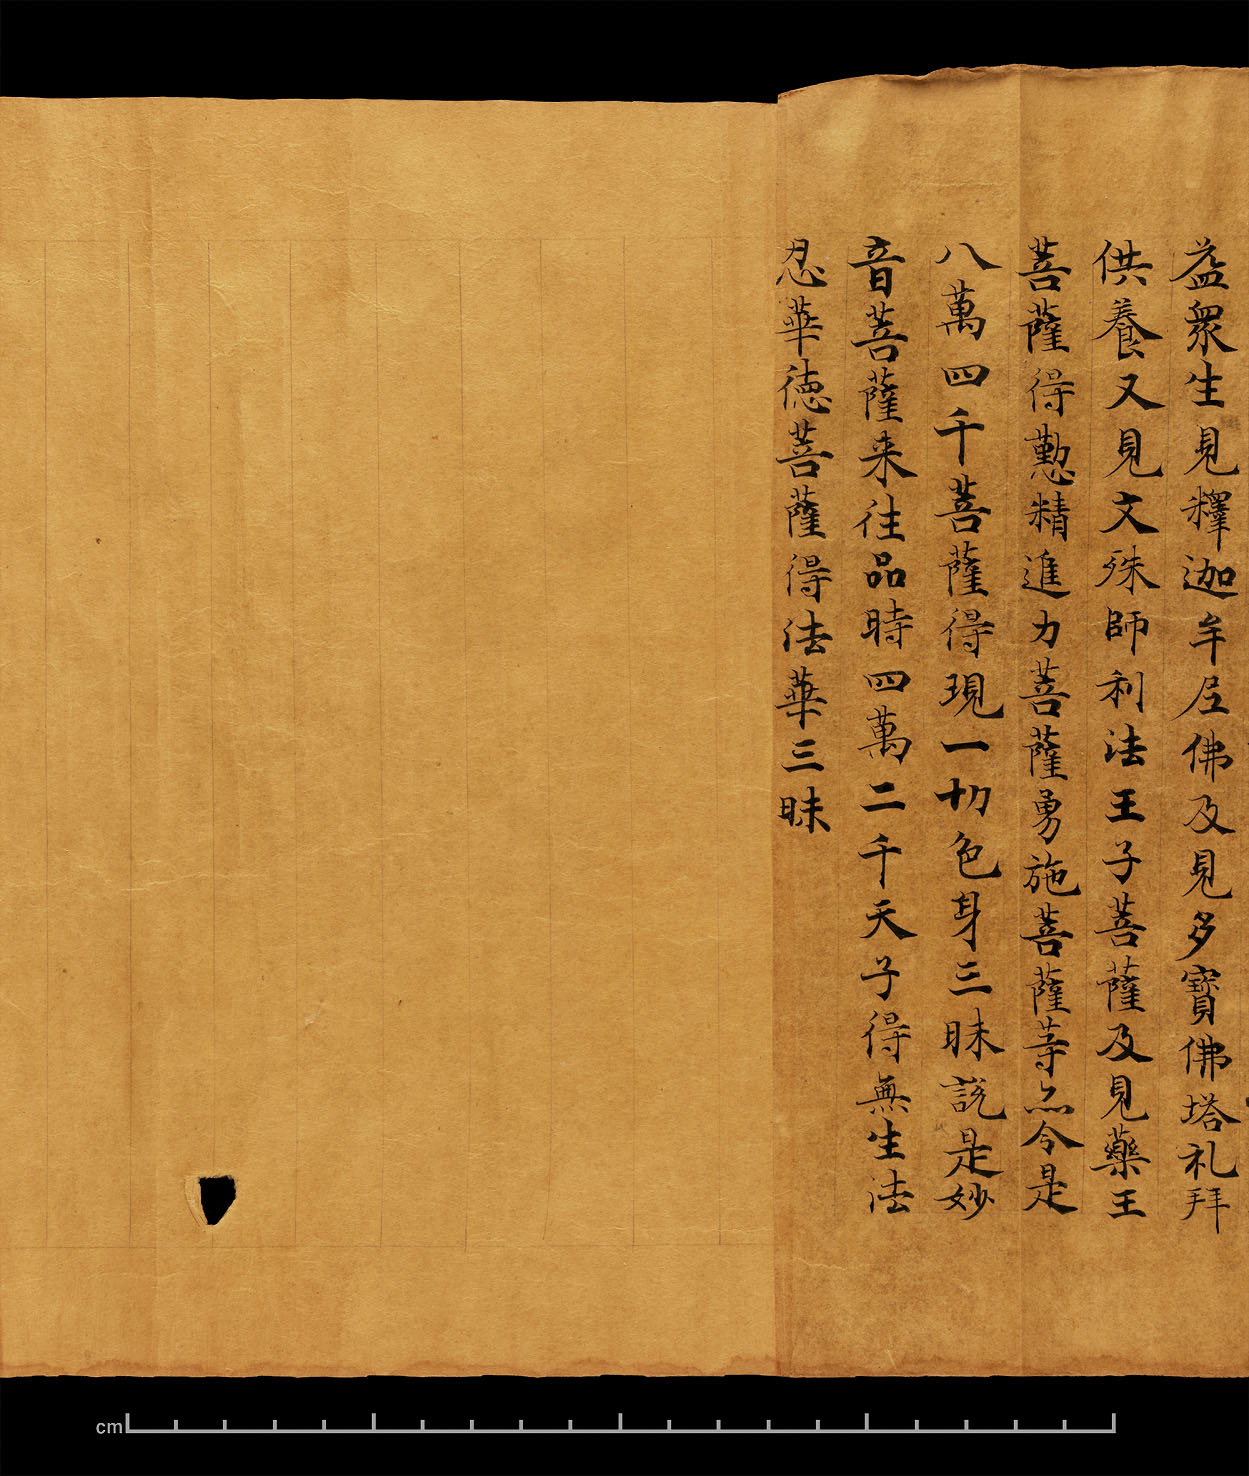 益眾生見釋迦牟尼佛及見多寶佛塔礼拜
供養又見文殊師利法王子菩薩及見藥王
菩薩得懃精進力菩薩勇施菩薩等亦令是
八萬四千菩薩得現一切色身三昧說是妙
音菩薩来往品時四萬二千天子得無生法
忍華德菩薩得法華三昧
cm